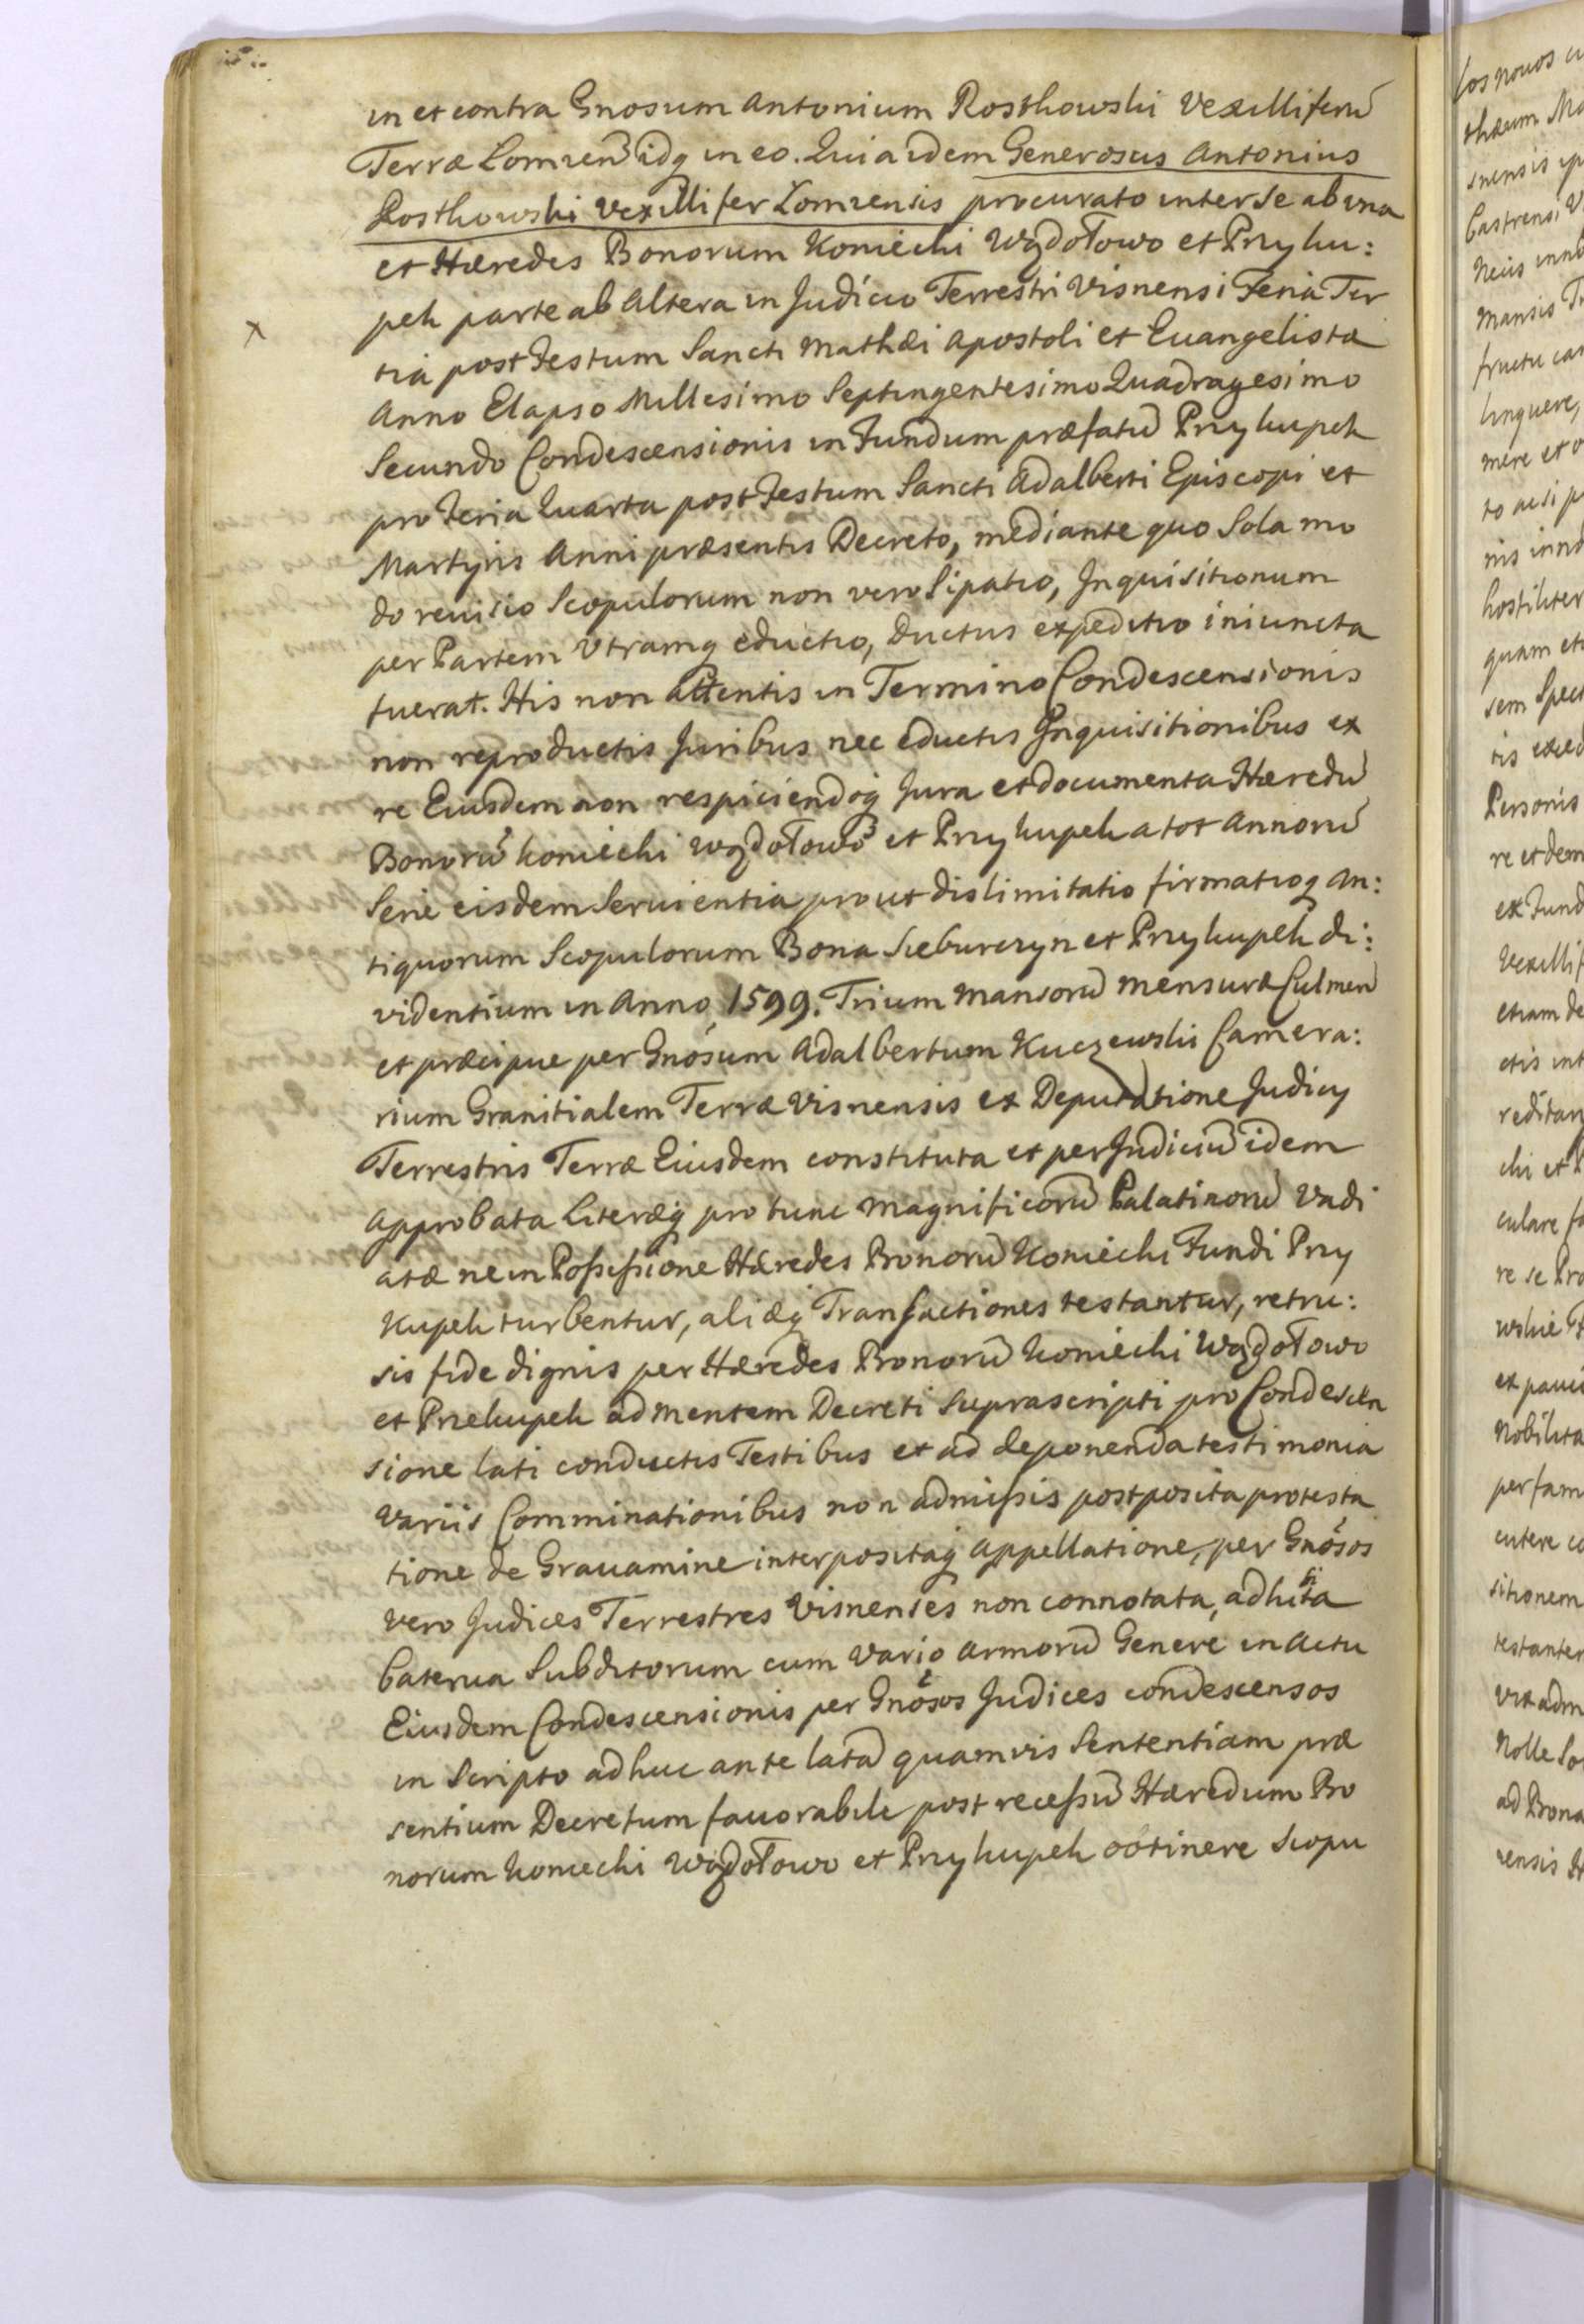 in et contra Gnosum Antonium Rosthowski Vexilliferū
Terræ Lomzen̄ idq in eo. Quia idem Generosus Antonius
Rosthowski Vexillifer Lomzensis procurato inter se ab una
et Hæredes Bonorum Koniecki Wądołowo et Przyku:
pek parte ab altera in Judicio Terrestri Visnensi Feria Ter
tia post Festum Sancti Mathæi Apostoli et Euangelistæ
Anno Elapso Millesimo Septingentesimo Quadragesimo
Secundo Condescensionis in Fundum præfatū Przykupek
pro Feria Quarta post Festum Sancti Adalberti Episcopi et
Martyris Anni præsentis Decreto, mediante quo Sola mo
do reuisio Scopulorum non vero Sipatio, Inquisitionum
per Partem Utramq eductio, Ductus expeditio iniuncta
fuerat. His non attentis in Termino Condescensionis
non reproductis Juribus nec eductis Inquisitionibus ex
re Eiusdem non respiciendoq Jura et documenta Hæredū
Bonorū koniecki wądołowo et Przykupek a tot Annorū
Serie eisdem Seruientia prout dislimitatio firmatioq An:
tiquorum Scopulorum Bona Sieburczyn et Przykupek di:
videntium in Anno 1599. Trium Mansorū mensuræ Culmen̄
et præcipue per Gnosum Adalbertum Kuczewski Camera:
rium Granitialem Terræ Visnensis ex Deputatione Judicy
Terrestris Terræ Eiusdem constituta et per Judiciū idem
Approbata Literæq pro tunc Magnificorū Palatinorū Vadi
atæ ne in Poſseſsione Hæredes Bonorū Koniecki Fundi Przy
kupek turbentur, aliæq Transactiones testantur, retru:
sis fide dignis per Hæredes Bonorū Koniecki Wądołowo
et Przekupek ad mentem Decreti Suprascripti pro Condescen
sione lati conductis Testibus et ad deponenda testimonia
Variis Comminationibus non admiſsis postposita protesta
tione de Grauamine interpositaq Appellatione, per Gnosos
vero Judices Terrestres Visnenses non connotata, adhibita
Caterua Subditorum cum Vario Armorū Genere in Actu
Eiusdem Condescensionis per Gnosos Judices condescensos
in Scripto adhuc ante latā quamvis Sententiam præ
sentium Decretum fauorabile post receſsū Hæredum Bo
norum koniecki Wądołowo et Przykupek obtinere Scopu